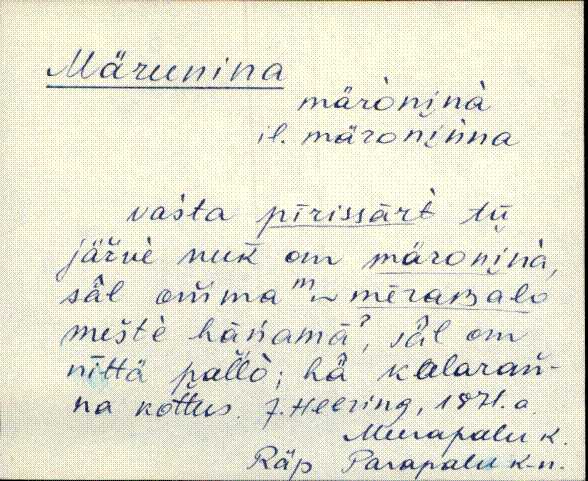 Märunina
märòninà
il. märoninna
vašta pīrissārt̀ tū
järvè nuk̄ om märoninà,
sǟl om̄ma ᵐ~ mērapalo
meštè hǟnamāʔ, sǟl om
nīttä pal̄lò; hǟ kalaran̄-
na kottus. J. Heering, 1871. a.
Meerapalu k.
Räp Parapalu k-n.